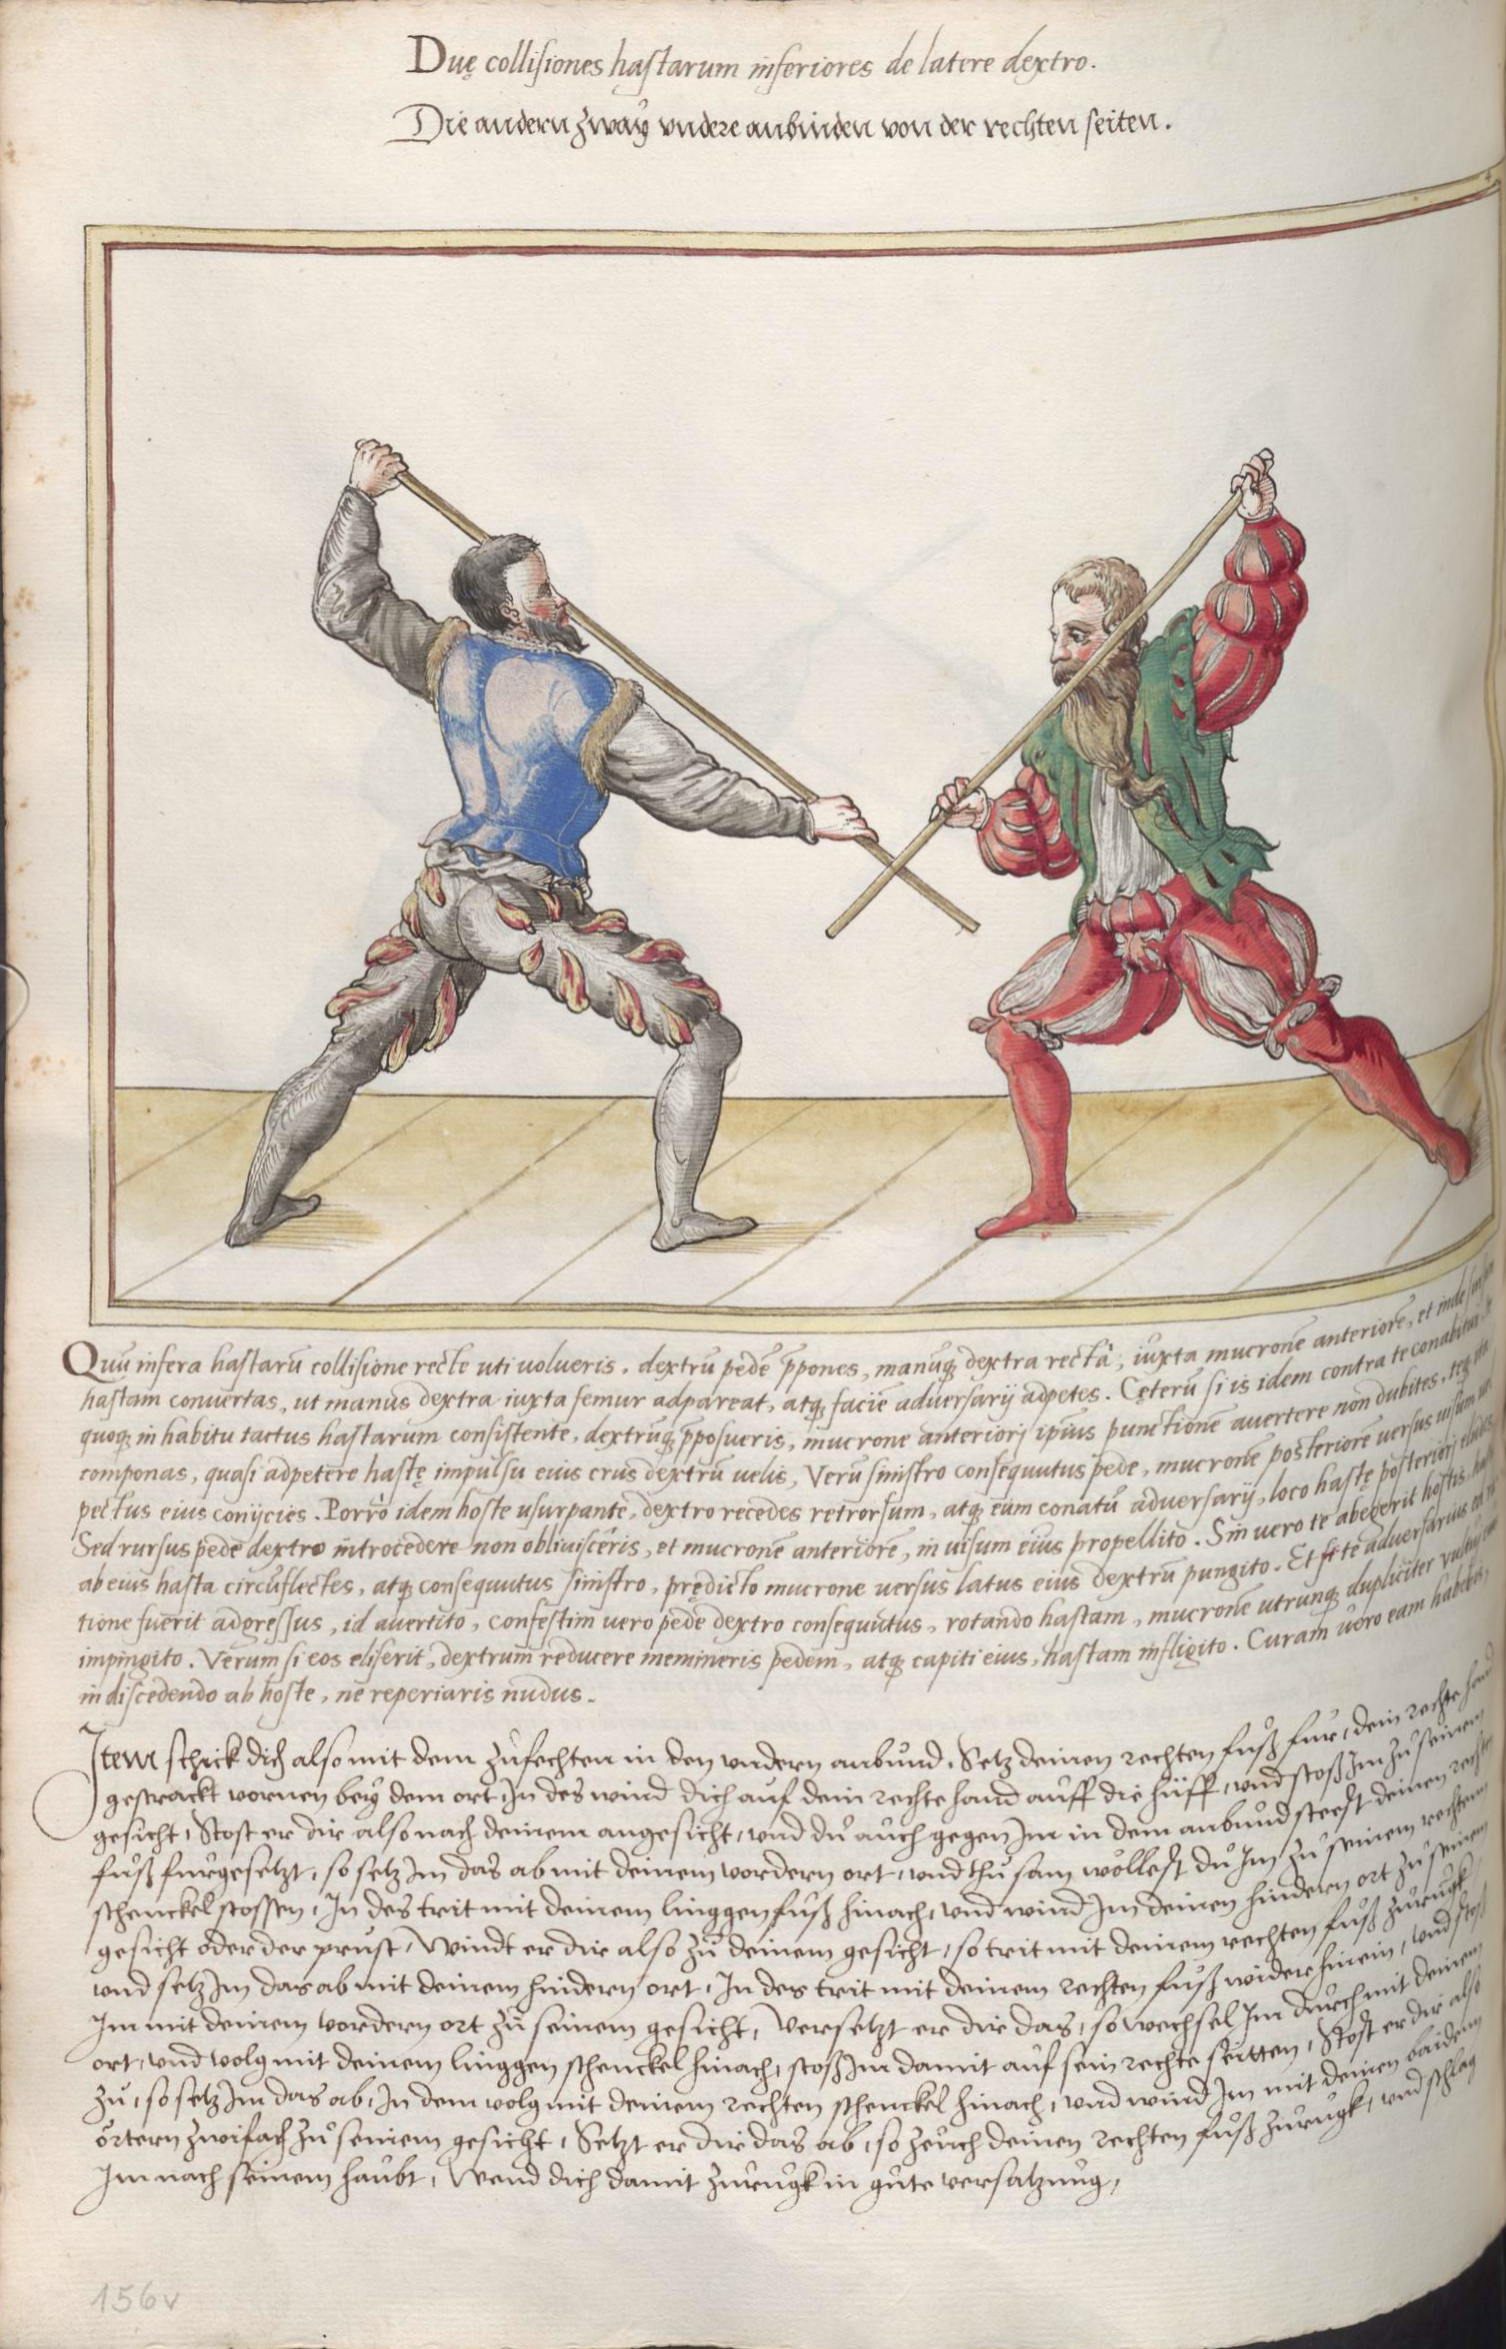 Duę collisiones hastarum inferiores de latere dextro.
Die andern zway vndere anbinden von der rechten seiten.
Quũ infera hastarũ collisione recte uti uolueris, dextrũ pedẽ p̃pones, manũq; dextra recta, iuxta mucronẽ anteriorẽ, et inde
hastam conuertas, ut manus dextra iuxta femur adpareat, atq; faciẽ aduersarij adpetes. Cęterũ si is idem contra te conabitur
quoq; in habitu tactus hastarum consistente, dextrũq; p̃posueris, mucrone anteriorj ipsius punctionẽ auertere non dubites, teq; ita
componas, quasi adpetere hastę impulsu eius crus dextrũ uelis, Verũ sinistro consequutus pede, mucronẽ posteriorẽ versus uisum
pectus eius conijcies. Porrò idem hoste usurpante, dextro recedes retrorsum, atq; eum conatũ aduersarij, loco hastę posteriorj eludes,
Sed rursus pede dextro introcedere non obliuiscêris, et mucronẽ anteriorẽ, in uisum eius propellito. Sin uero te abegerit hostis,
ab eius hasta circũflectes, atq; consequutus sinistro, prędicto mucrone uersus latus eius dextrũ pungito. Et si te aduersarius
tione fuerit adgressus, id auertito, confestim uero pede dextro consequutus, rotando hastam, mucronẽ utrunq; dupliciter
impingito. Verum si eos eliserit, dextrum reducere memineris pedem, atq; capiti eius, hastam infligito. Curam uero eam habebis,
in discedendo ab hoste, ne reperiaris nudus.
Item schick dich also mit dem zůfechten in den vndern anbund, Setz deinen rechten fůß fur, dein rechte hand
gestrackt vornen bey dem ort, In des wind dich auf dein rechte hand auff die hüff, vnd stoß Im zů seinem
gesicht, Stost er dir also nach deinem angesicht, vnd du auch gegen Im in dem anbund steest deinen rechten
fůß fürgesetzt, so setz Im das ab mit deinem vordern ort, vnd thů sam wöllest du Im zů seinem rechtem
schenckel stossen, In des trit mit deinem linggen fůß hinach, vnd wind Im deinen hindern ort zů seinem
gesicht oder der prust, Windt er dir also zů deinem gesicht, so trit mit deinem rechten fůß zurugk
vnd setz Im das ab mit deinem hindern ort, In des trit mit deinem rechten fůß widere hinein, vnd stoß
Im mit deinem vordern ort zů seinem gesicht, Versetzt er dir das, so wechsel Im durch mit deinem
ort, vnd volg mit deinem linggen schenckel hinach, stoß Im damit auf sein rechte seitten, Stost er dir also
zů, so setz Im das ab, In dem volg mit deinem rechten schenckel hinach, vnd wind Im mit deinen baiden
örtern zwifach zů seinem gesicht, Setzt er dir das ab, so zeuch deinen rechten fůß zurugk, vnd schlag
Im nach seinem haubt, Wend dich damit zurugk in gůte versatzung,
156v